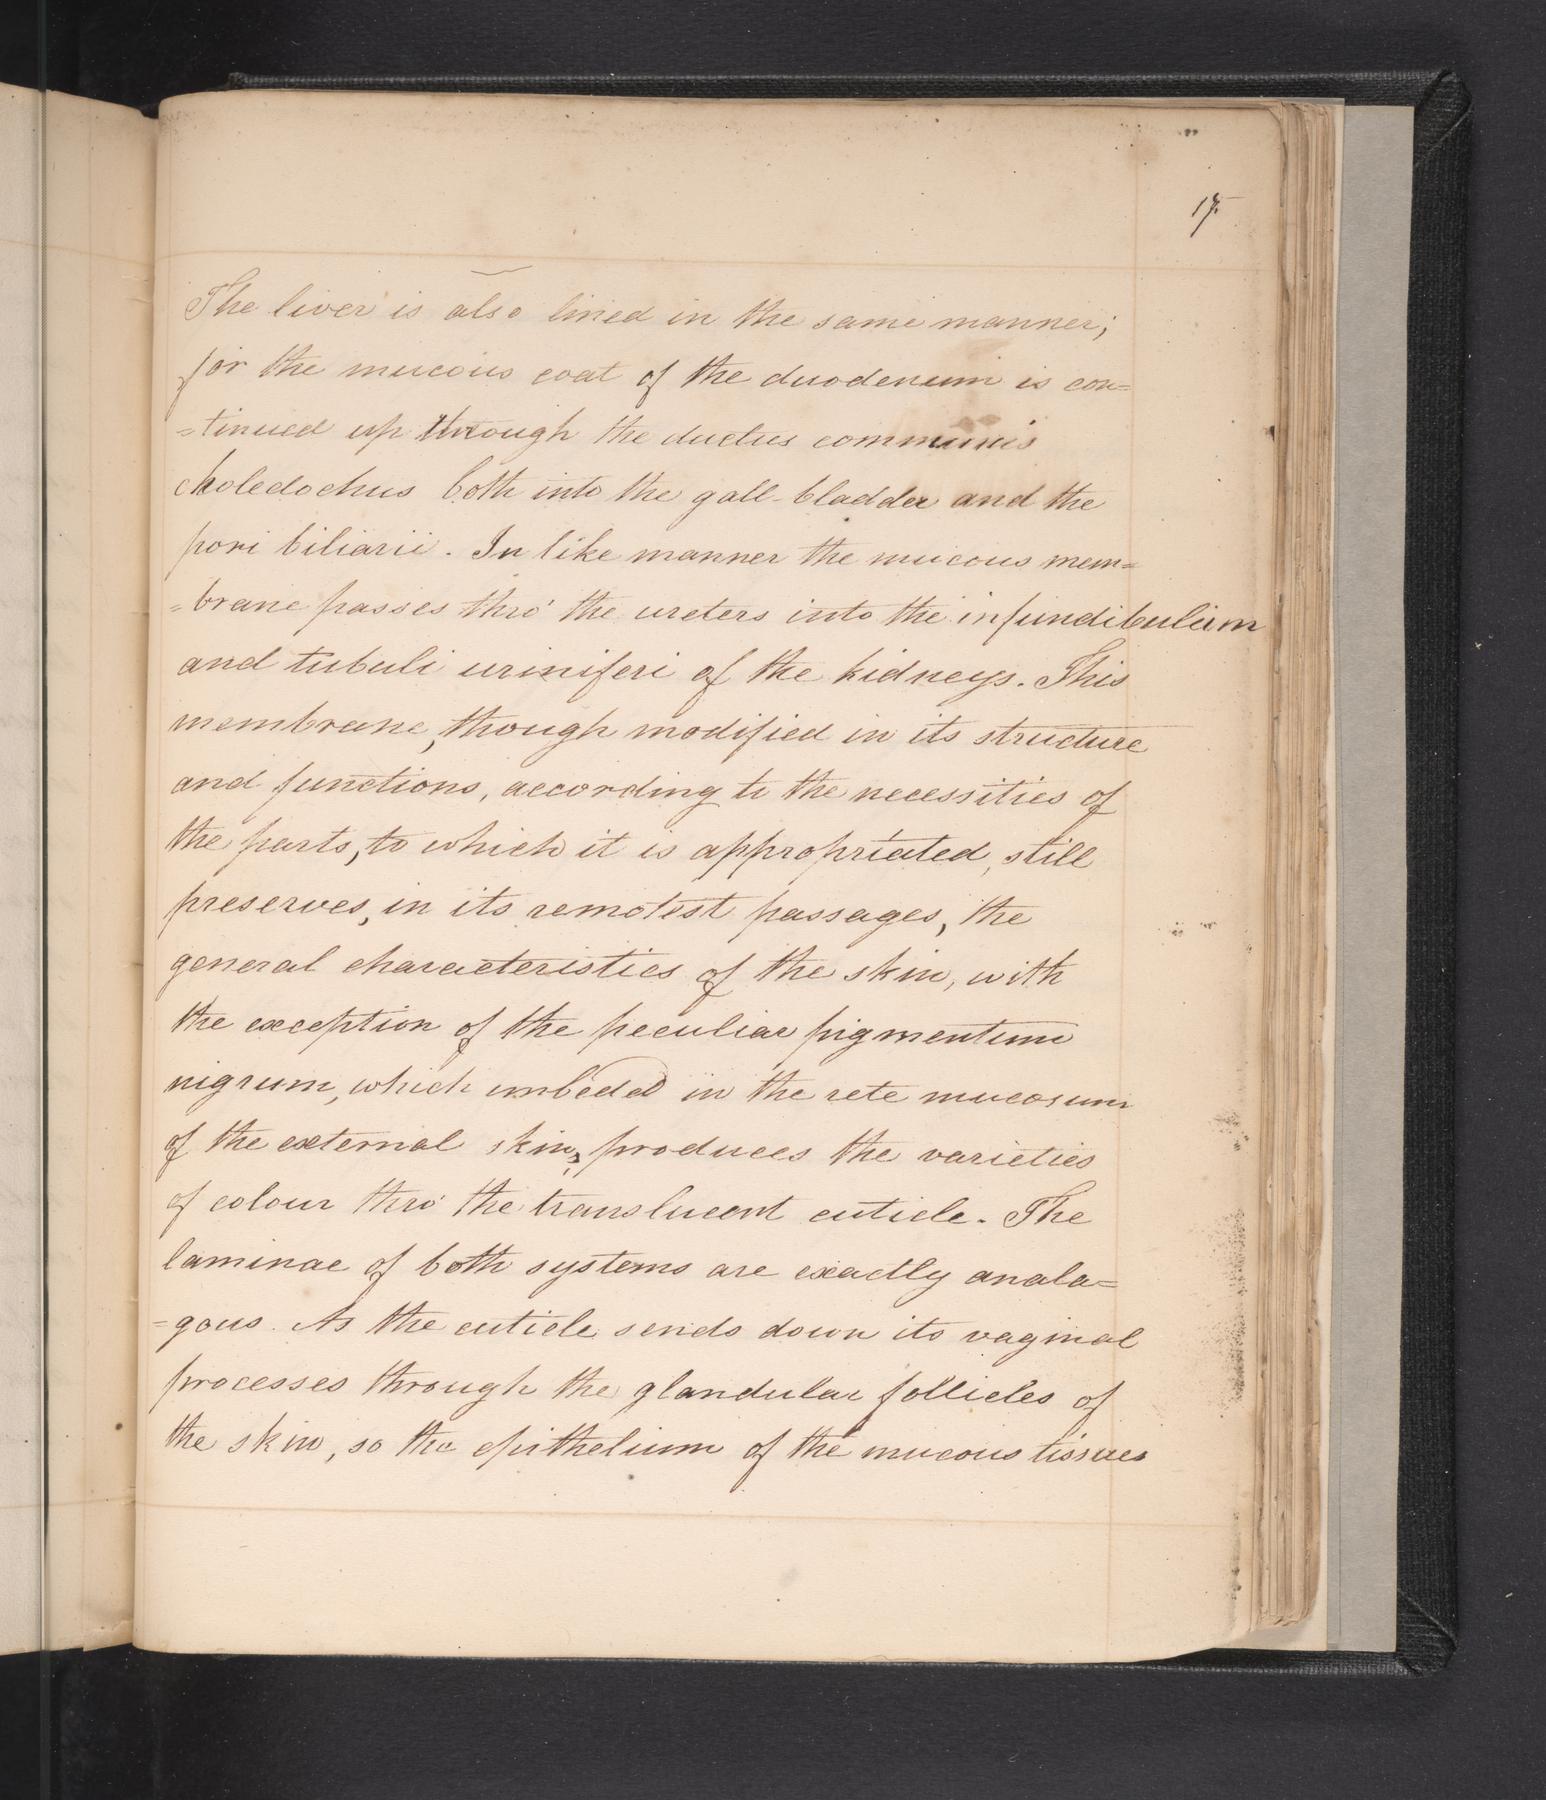 17.
The liver is also lined in the same manner;
for the mucous coat of the duodenum is con=
=tinued up through the ductus communis
choledochus both into the gall-bladder and the
pori biliarii. In like manner the mucous mem=
=brane passes thro' the ureters into the infundibulum
and tubuli uriniferi of the kidneys. This
membrane, though modified in its structure
and functions, according to the necessities of
the parts, to which it is appropriated, still
preserves, in its remotest passages, the
general characteristics of the skin, with
the exception of the peculiar pigmentum
nigrum, which imbeded in the rete mucosum
of the external skin, produces the varieties
of colour thro' the translucent cuticle. The
laminae of both systems are exactly anala=
=gous. As the cuticle sends down its vaginal
processes through the glandular follicles of
the skin, so the epithelium of the mucous tissues